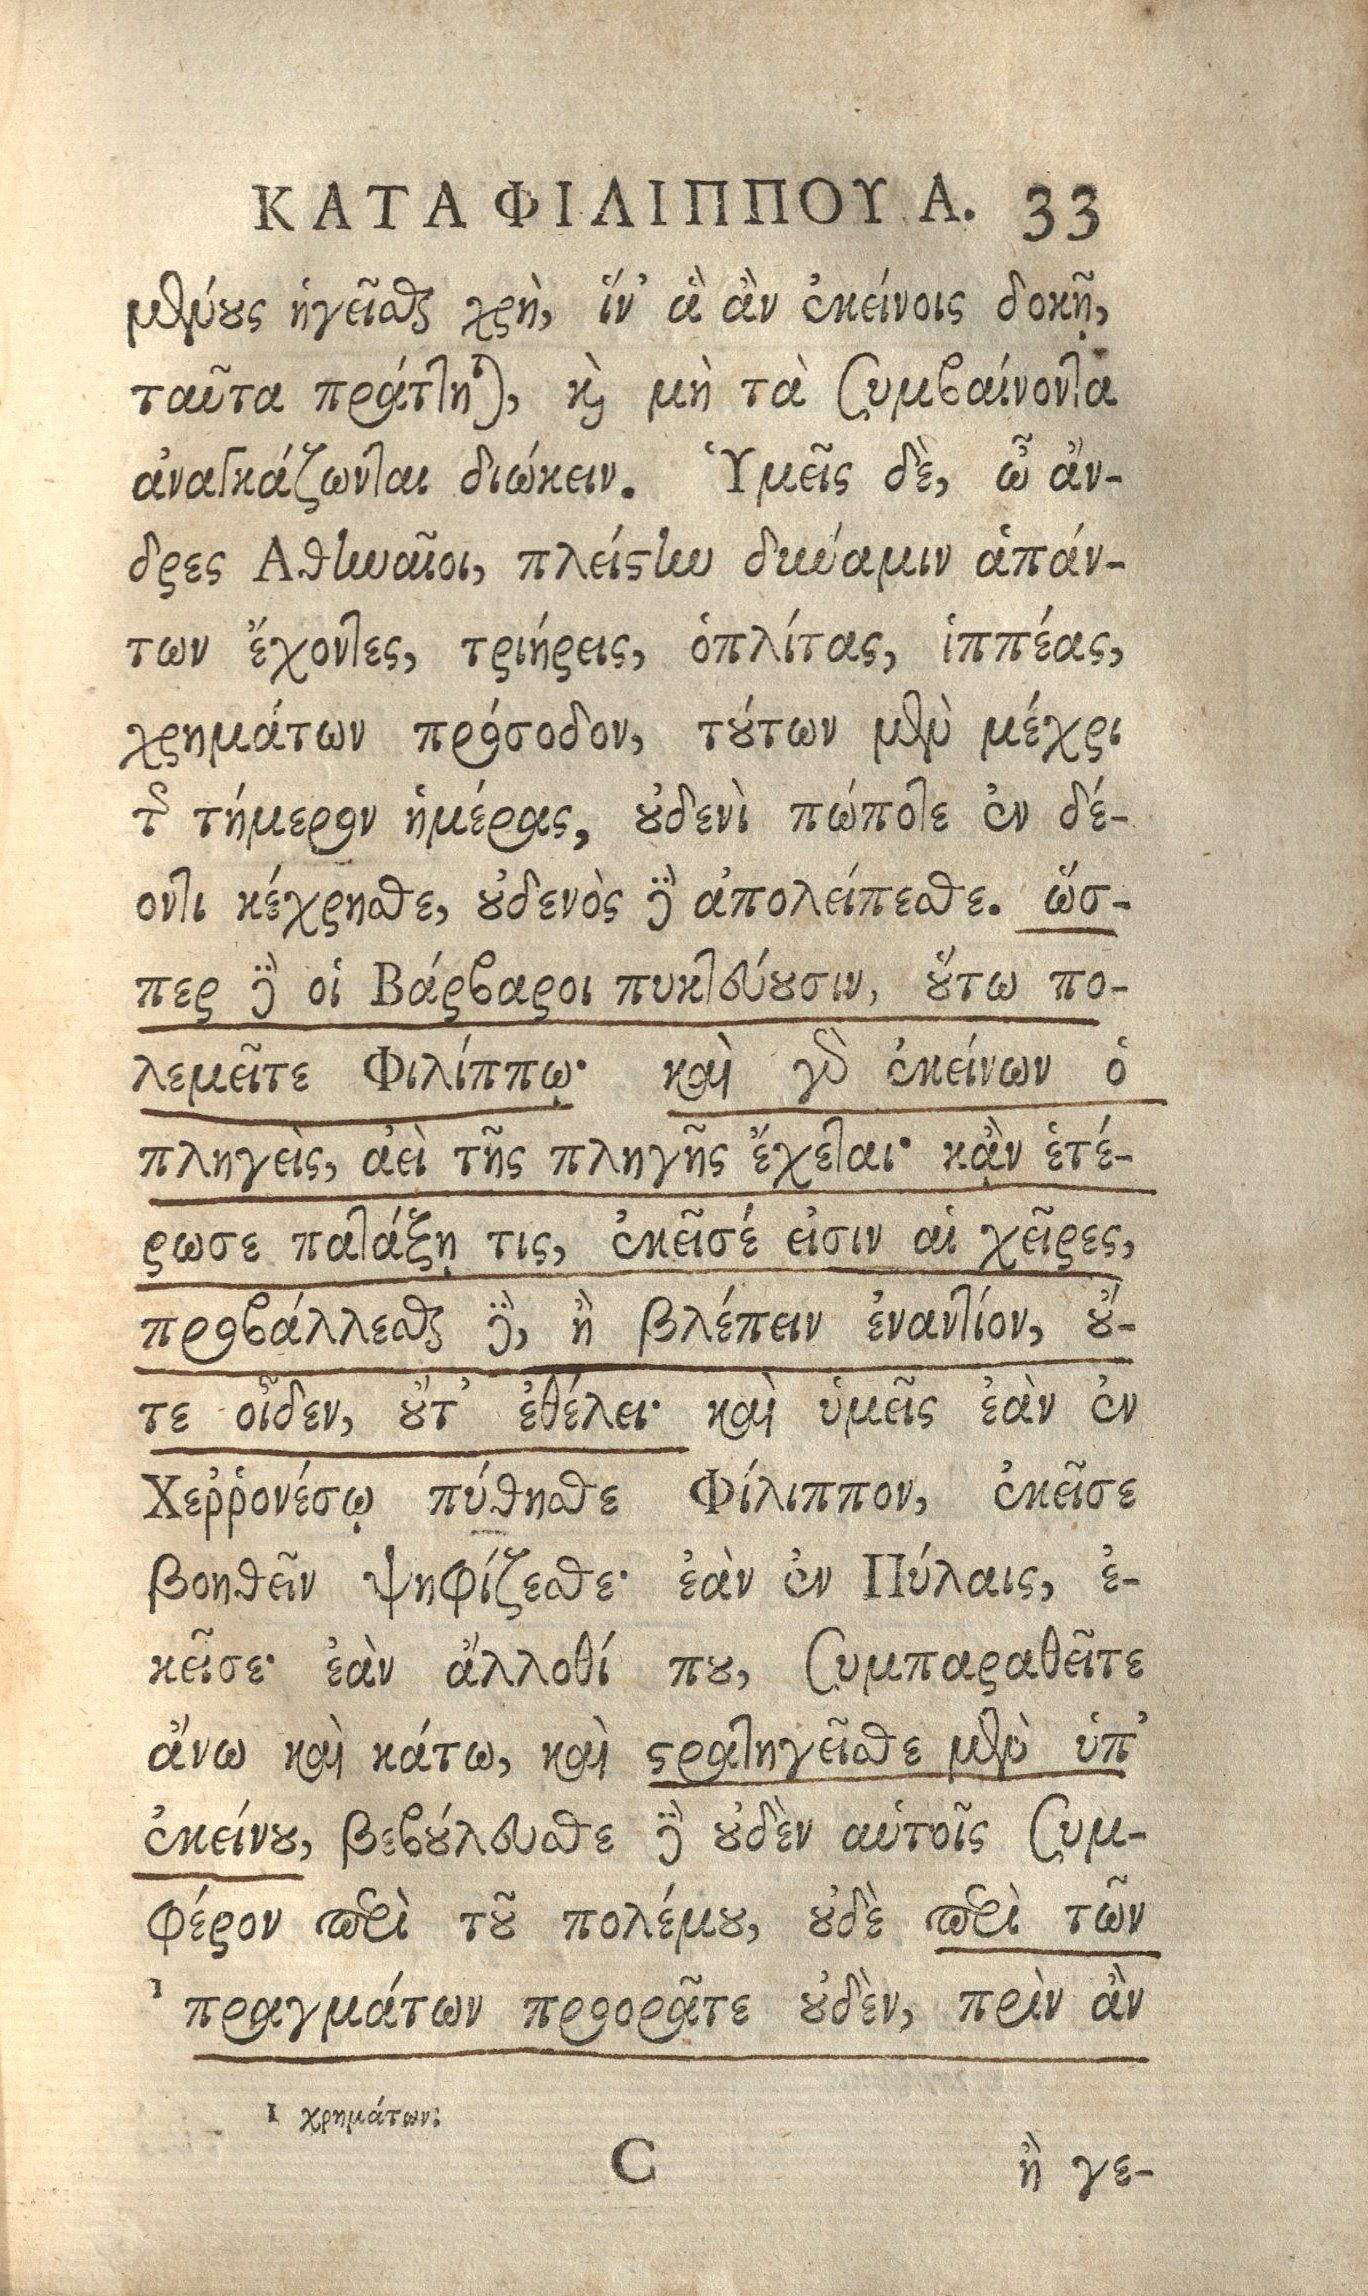 ΚΑΤΑ ΦΙΛΙΠΠΟΥ Α. 33
μένους ἡγεῖσθαι χρὴ, ἵν' ἃ ἂν ἐκείνοις δοκῇ,
ταῦτα πράττηται, καὶ μὴ τὰ συμβαίνοντα
ἀναγκάζωνται διώκειν. Ὑμεῖς δὲ, ὦ ἄν-
δρες Ἀθηναῖοι, πλείστην δύναμιν ἁπάν-
των ἔχοντες, τριήρεις, ὁπλίτας, ἱππέας,
χρημάτων πρόσοδον, τούτων μὲν μέχρι
τῆς τήμερον ἡμέρας, οὐδενὶ πώποτε ἐν δέ-
οντι κέχρησθε, οὐδενὸς δὲ ἀπολείπεσθε. ὥσ-
περ δὲ οἱ Βάρβαροι πυκτεύουσιν, οὕτω πο-
λεμεῖτε Φιλίππῳ· καὶ γὰρ ἐκείνων ὁ
πληγεὶς, ἀεὶ τῆς πληγῆς ἔχεται· κᾂν ἑτέ-
ρωσε πατάξῃ τις, ἐκεῖσέ εἰσιν αἱ χεῖρες,
προβάλλεσθαι δὲ, ἢ βλέπειν ἐναντίον, οὔ-
τε οἶδεν, οὔτ' ἐθέλει· καὶ ὑμεῖς ἐὰν ἐν
Χεῤῥονέσῳ πύθησθε Φίλιππον, ἐκεῖσε
βοηθεῖν ψηφίζεσθε· ἐὰν ἐν Πύλαις, ἐ-
κεῖσε· ἐὰν ἄλλοθί που, συμπαραθεῖτε
ἄνω καὶ κάτω, καὶ στρατηγεῖσθε μὲν ὑπ'
ἐκείνου, βεβούλευσθε δὲ οὐδὲν αὐτοῖς συμ-
φέρον περὶ τοῦ πολέμου, οὐδὲ περὶ τῶν
1 πραγμάτων προορᾶτε οὐδὲν, πρὶν ἂν
1 χρημάτων:
C ἢ γε-